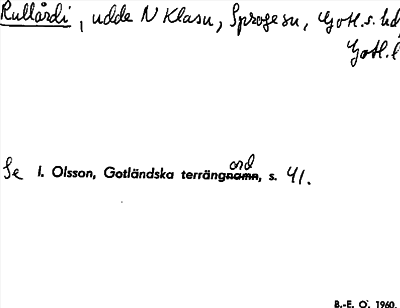 Rullårdi, udde N Klasu, Sproge sn, Gotl.s. hd,
Gotl. l
Se I. Olsson, Gotländska terrängord, s. 41.
B.-E. O. 1960.